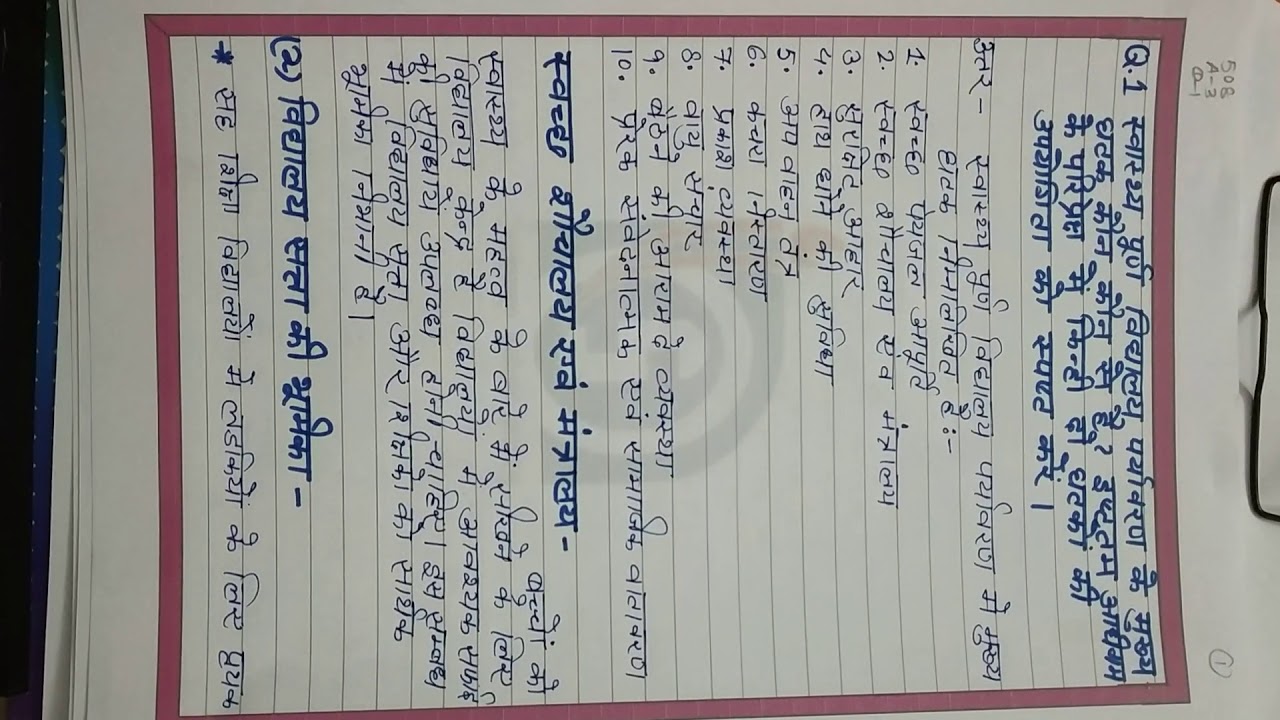 508
A-3
Q-1
①
Q.1 स्वास्थ्य पूर्ण विद्यालय पर्यावरण के मुख्य
घटक कौन कौन से है? इष्टतम अधिगम
के परिप्रेक्ष में किन्ही दो घटको की
उपयोगिता को स्पष्ट करें।
उत्तर - स्वास्थ्य पूर्ण विद्यालय पर्यावरण में मुख्य
घटक निम्नलिखित हैं:-
1. स्वच्छ पेयजल आपूर्ति
2. स्वच्छ शौचालय एवं मंत्रालय
3. सुरक्षित आहार
4. हाथ धोने की सुविधा
5. अप वहन तंत्र
6. कचरा निस्तारण
7. प्रकाश व्यवस्था
8. वायु संचार
9. बैठने की आरामदे व्यवस्था
10. प्रेरक संवेदनात्मक एवं सामाजिक वातावरण
स्वच्छ शौचालय एवं मंत्रालय -
स्वास्थ्य के महत्व के बारे में सीखने के लिए बच्चों को
विद्यालय केन्द्र है विद्यालय में आवश्यक सफाई
की सुविधाये उपलब्ध होनी चाहिए। इस सम्बंध
में विद्यालय सत्ता और शिक्षको को सार्थक
भूमिका निभानी है।
(2) विद्यालय सत्ता की भूमिका -
* सह शिक्षा विद्यालयों में लडकियों के लिए पृथक